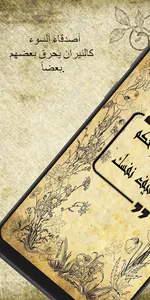 أصدقاء السوء
كالنيران يحرق بعضهم
بعضاً.
نفسك